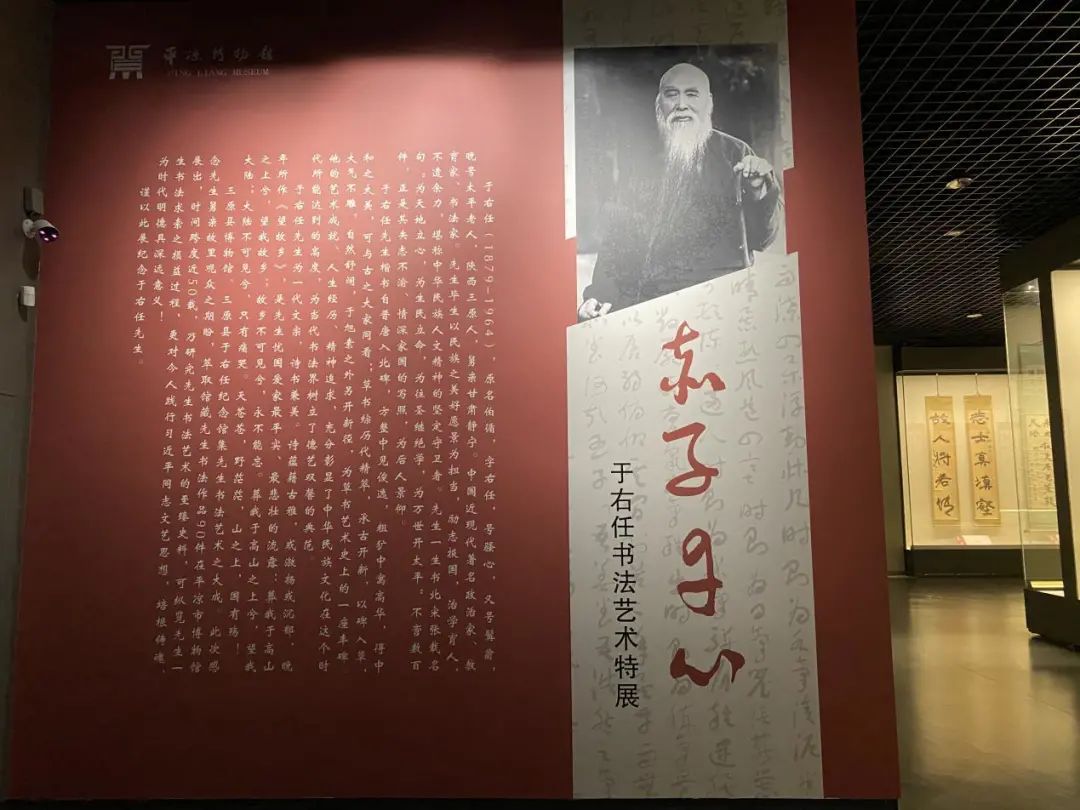 平凉博物馆
PING LIANG MUSEUM
赤子心
于右任书法艺术特展
于右任（1879—1964），原名伯循，字右任，号骚心，又号髯翁，
晚号太平老人，陕西三原人，舅亲甘肃静宁。中国近现代著名政治家、教
育家、书法家。先生毕生以民族之美好愿景为担当，励志报国，治学育人，
不遗余力，堪称中华民族人文精神的坚定守卫者。先生一生书北宋张载名
句“为天地立心，为生民立命，为往圣继绝学，为万世开太平”不啻数百
件，正是其矢志不渝、情深家国的写照，为后人景仰。
于右任先生楷书自晋唐入北碑，方整中见俊逸，粗犷中寓高华，得中
和之大美，可与古之大家同看；草书综历代精萃，承古开新，以碑入草，
大气不雕，自然舒阔，于旭素之外另开新径，为草书艺术史上的一座丰碑。
他的艺术成就、人生经历、精神追求，充分彰显了中华民族文化在这个时
代所能达到的高度，为当代书法界树立了德艺双馨的典范。
于右任先生为一代文宗，诗书兼美。诗蕴藉古雅，或激扬或沉郁，晚
年所作《望故乡》，是先生忧国爱家最平实、最悲壮的流露：葬我于高山
之上兮，望我故乡；故乡不可见兮，永不能忘。葬我于高山之上兮，望我
大陆；大陆不可见兮，只有痛哭。天苍苍，野茫茫，山之上，国有殇！
三原县博物馆、三原县于右任纪念馆集先生书法艺术之大成，此次感
念先生舅亲故里观众之期盼，萃取馆藏先生书法作品90件在平凉市博物馆
展出，时间跨度近50载，乃研究先生书法艺术的至臻史料，可纵览先生一
生书法求索之损益过程，更对今人践行习近平同志文艺思想，培根铸魂，
为时代明德具深远意义！
谨以此展纪念于右任先生。
志士真填壑
故人将若